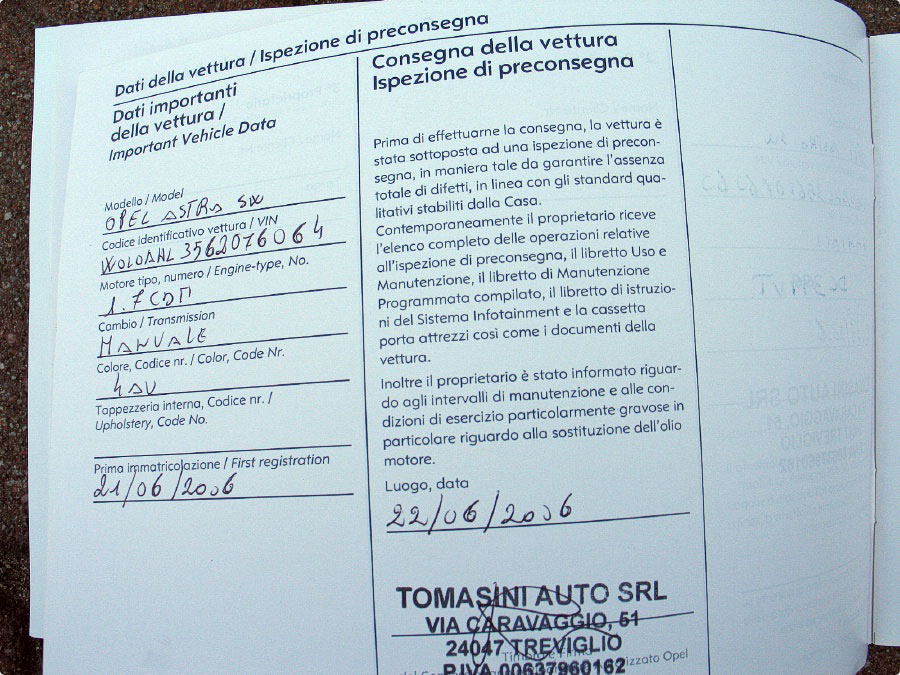 Dati della vettura / Ispezione di preconsegna
Dati importanti
della vettura /
Important Vehicle Data
Modello / Model
OPEL ASTRA SW
Codice identificativo vettura / VIN
W0L0AHL3562076064
Motore tipo, numero / Engine-type, No.
1.7 CDTI
Cambio / Transmission
MANUALE
Colore, Codice nr. / Color, Code Nr.
Tappezzeria interna, Codice nr. /
Upholstery, Code No.
Prima immatricolazione / First registration
21/06/2006
Consegna della vettura
Ispezione di preconsegna
Prima di effettuarne la consegna, la vettura è
stata sottoposta ad una ispezione di precon-
segna, in maniera tale da garantire l'assenza
totale di difetti, in linea con gli standard qua-
litativi stabiliti dalla Casa.
Contemporaneamente il proprietario riceve
l'elenco completo delle operazioni relative
all'ispezione di preconsegna, il libretto Uso e
Manutenzione, il libretto di Manutenzione
Programmata compilato, il libretto di istruzio-
ni del Sistema Infotainment e la cassetta
porta attrezzi così come i documenti della
vettura.
Inoltre il proprietario è stato informato riguar-
do agli intervalli di manutenzione e alle con-
dizioni di esercizio particolarmente gravose in
particolare riguardo alla sostituzione dell'olio
motore.
Luogo, data
22/06/2006
TOMASINI AUTO SRL
VIA CARAVAGGIO, 51
24047 TREVIGLIO
P.IVA 00637960162
Opel